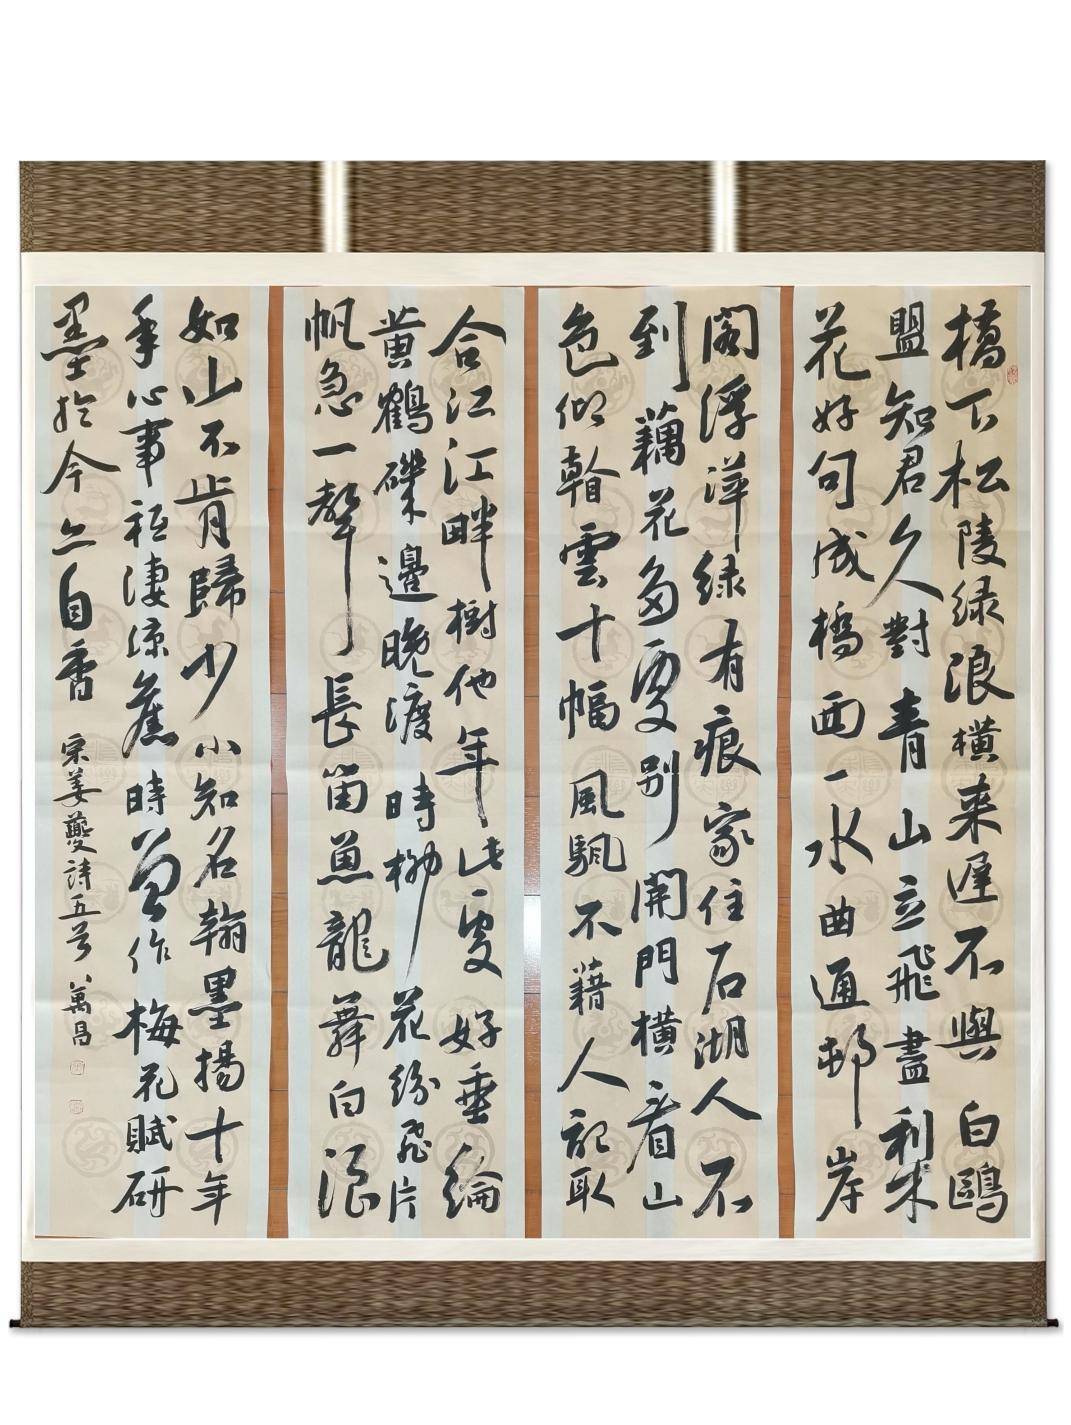 橋下松陵绿浪横来遲不與白鷗
盟知君久對青山立飛盡梨
花好句成橋西一水曲通邨岸
閣浮萍绿有痕家住石湖人不
到藕花多處别開門横看山
色仰看雲十幅風颿不藉人記取
合江江畔樹他年此處好垂綸
黄鶴磯邊晚渡時柳花紛飛片
帆急一聲長笛魚龍舞白浪
如山不肯歸少小知名翰墨場十年
心事祗淒凉舊時曾作梅花賦研
墨於今亦自香 宋姜夔詩五首 萬昌